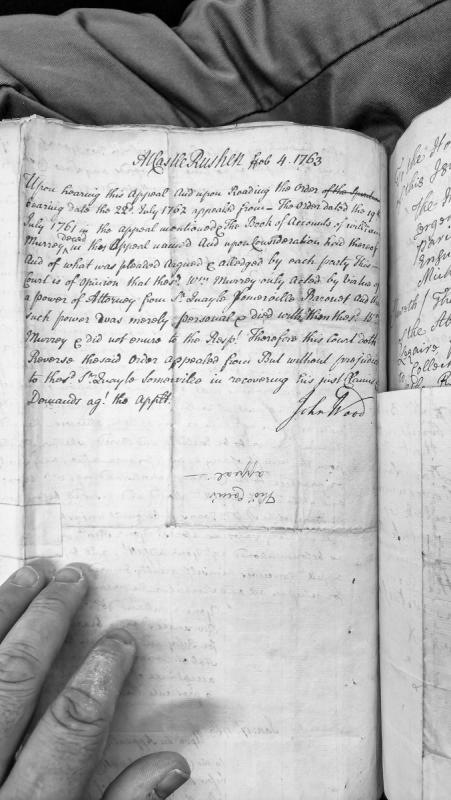 At Castle Rushen Feb 4. 1763
Upon hearing this Appeal And upon Reading the Order of the
bearing date the 22d. July 1762 appealed from - The Order dated the 19th
July 1761 in the appeal mentioned & The Book of Accounts of William
Murrey decd. in the Appeal named And upon Consideration had thereof
And of what was pleaded argued & alledged by each party This
Court is of Opinion that the sd. Wm. Murrey only acted by virtue of
a power of Attorney from Sr. Quayle Somerville Baronet And that
such power was merely personal & died with him the sd. Wm.
Murrey & did not enure to the Respt. Therefore this Court doth
Reverse the said Order appealed from But without prejudice
to the sd. Sr. Quayle Somerville in recovering his just Claims
Demands agt. the Applt.
John Wood
appeal
Of the
of the